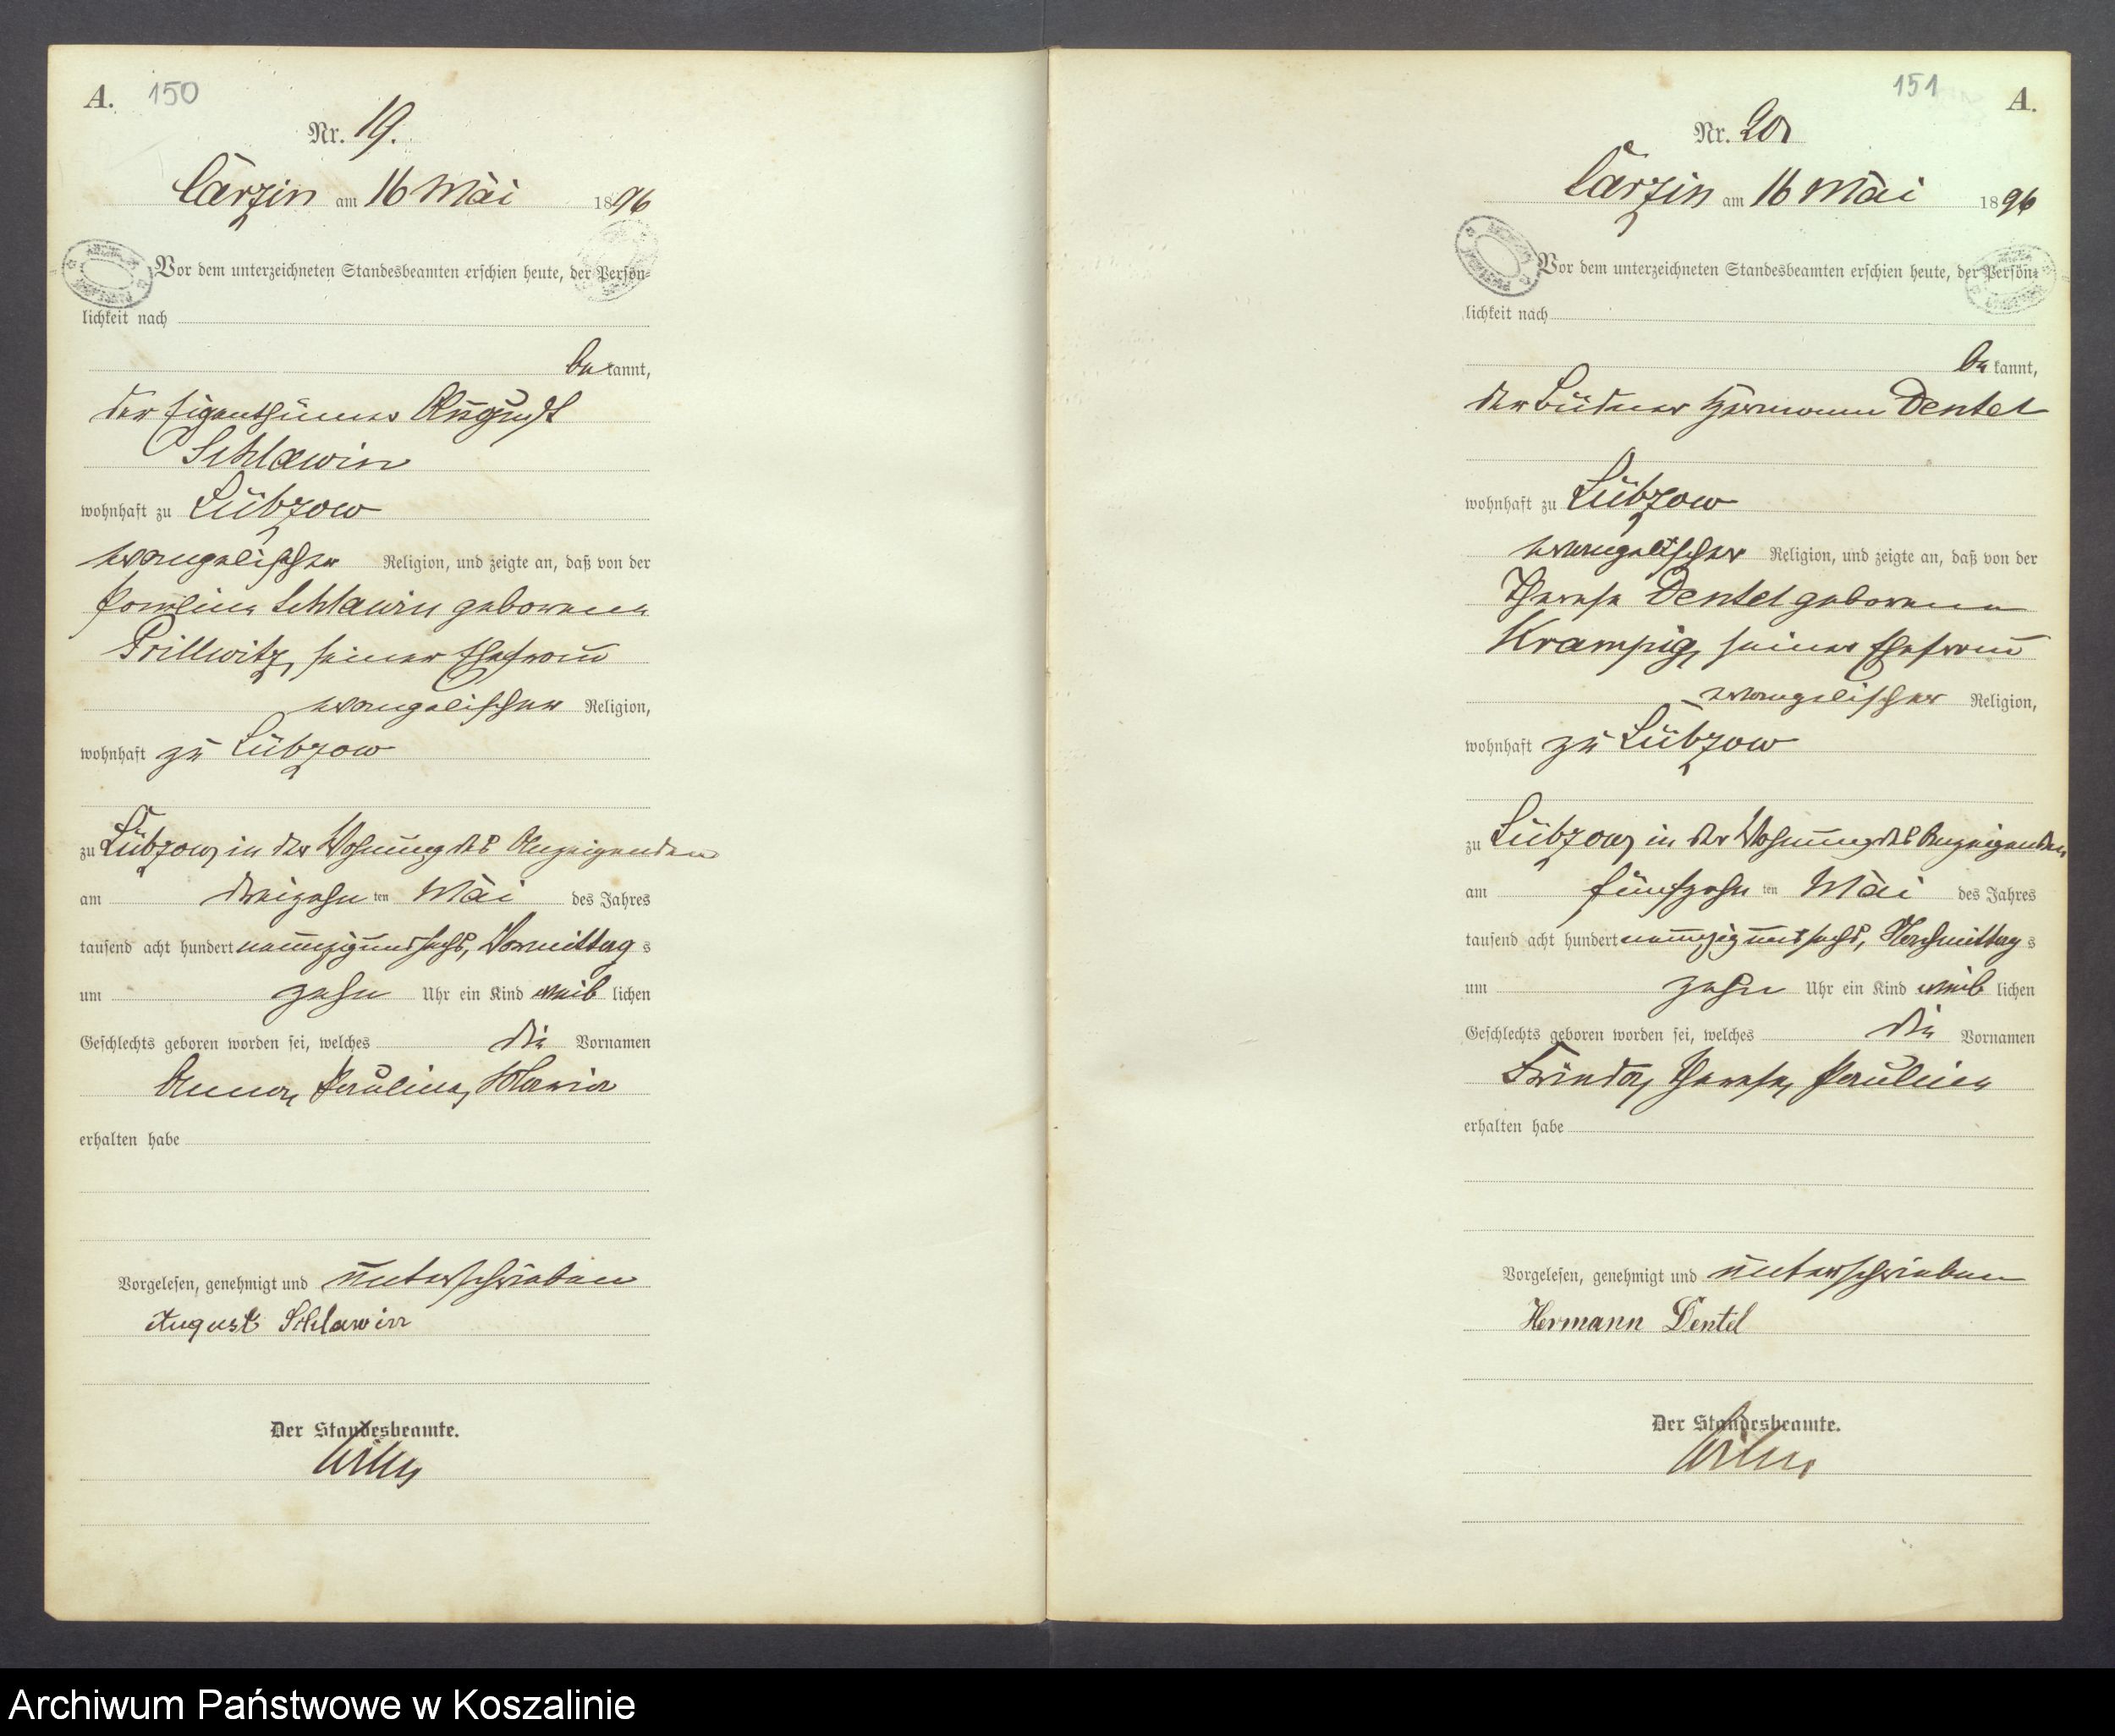 A. 150
Nr. 19.
Carzin am 16 Mai 1896
Vor dem unterzeichneten Standesbeamten erschien heute, der Persön-
lichkeit nach
bekannt,
der Eigenthümer August
Schlawin
wohnhaft zu Lübzow
evangelischer Religion, und zeigte an, daß von der
Pauline Schlawin geborene
Prillwitz, seiner Ehefrau
evangelischer Religion,
wohnhaft zu Lübzow
zu Lübzow, in der Wohnung des Anzeigenden
am dreizehn ten Mai des Jahres
tausend acht hundert neunzig und sechs, Vormittag s
um zehn Uhr ein Kind weib lichen
Geschlechts geboren worden sei, welches die Vornamen
Anna, Pauline, Maria
erhalten habe
Vorgelesen, genehmigt und unterschrieben
August Schlawin
Der Standesbeamte.
151 A.
Nr. 20
Carzin am 16 Mai 1896
Vor dem unterzeichneten Standesbeamten erschien heute, der Persön-
lichkeit nach
bekannt,
der Büdner Hermann Dentel
wohnhaft zu Lübzow
evangelischer Religion, und zeigte an, daß von der
Therese Dentel geborene
Krampig, seiner Ehefrau
evangelischer Religion,
wohnhaft zu Lübzow
zu Lübzow, in der Wohnung des Anzeigenden
am fünfzehn ten Mai des Jahres
tausend acht hundert neunzig und sechs, Nachmittag s
um zehn Uhr ein Kind weib lichen
Geschlechts geboren worden sei, welches die Vornamen
Frieda, Therese, Pauline
erhalten habe
Vorgelesen, genehmigt und unterschrieben
Hermann Dentel
Der Standesbeamte.
Archiwum Państwowe w Koszalinie